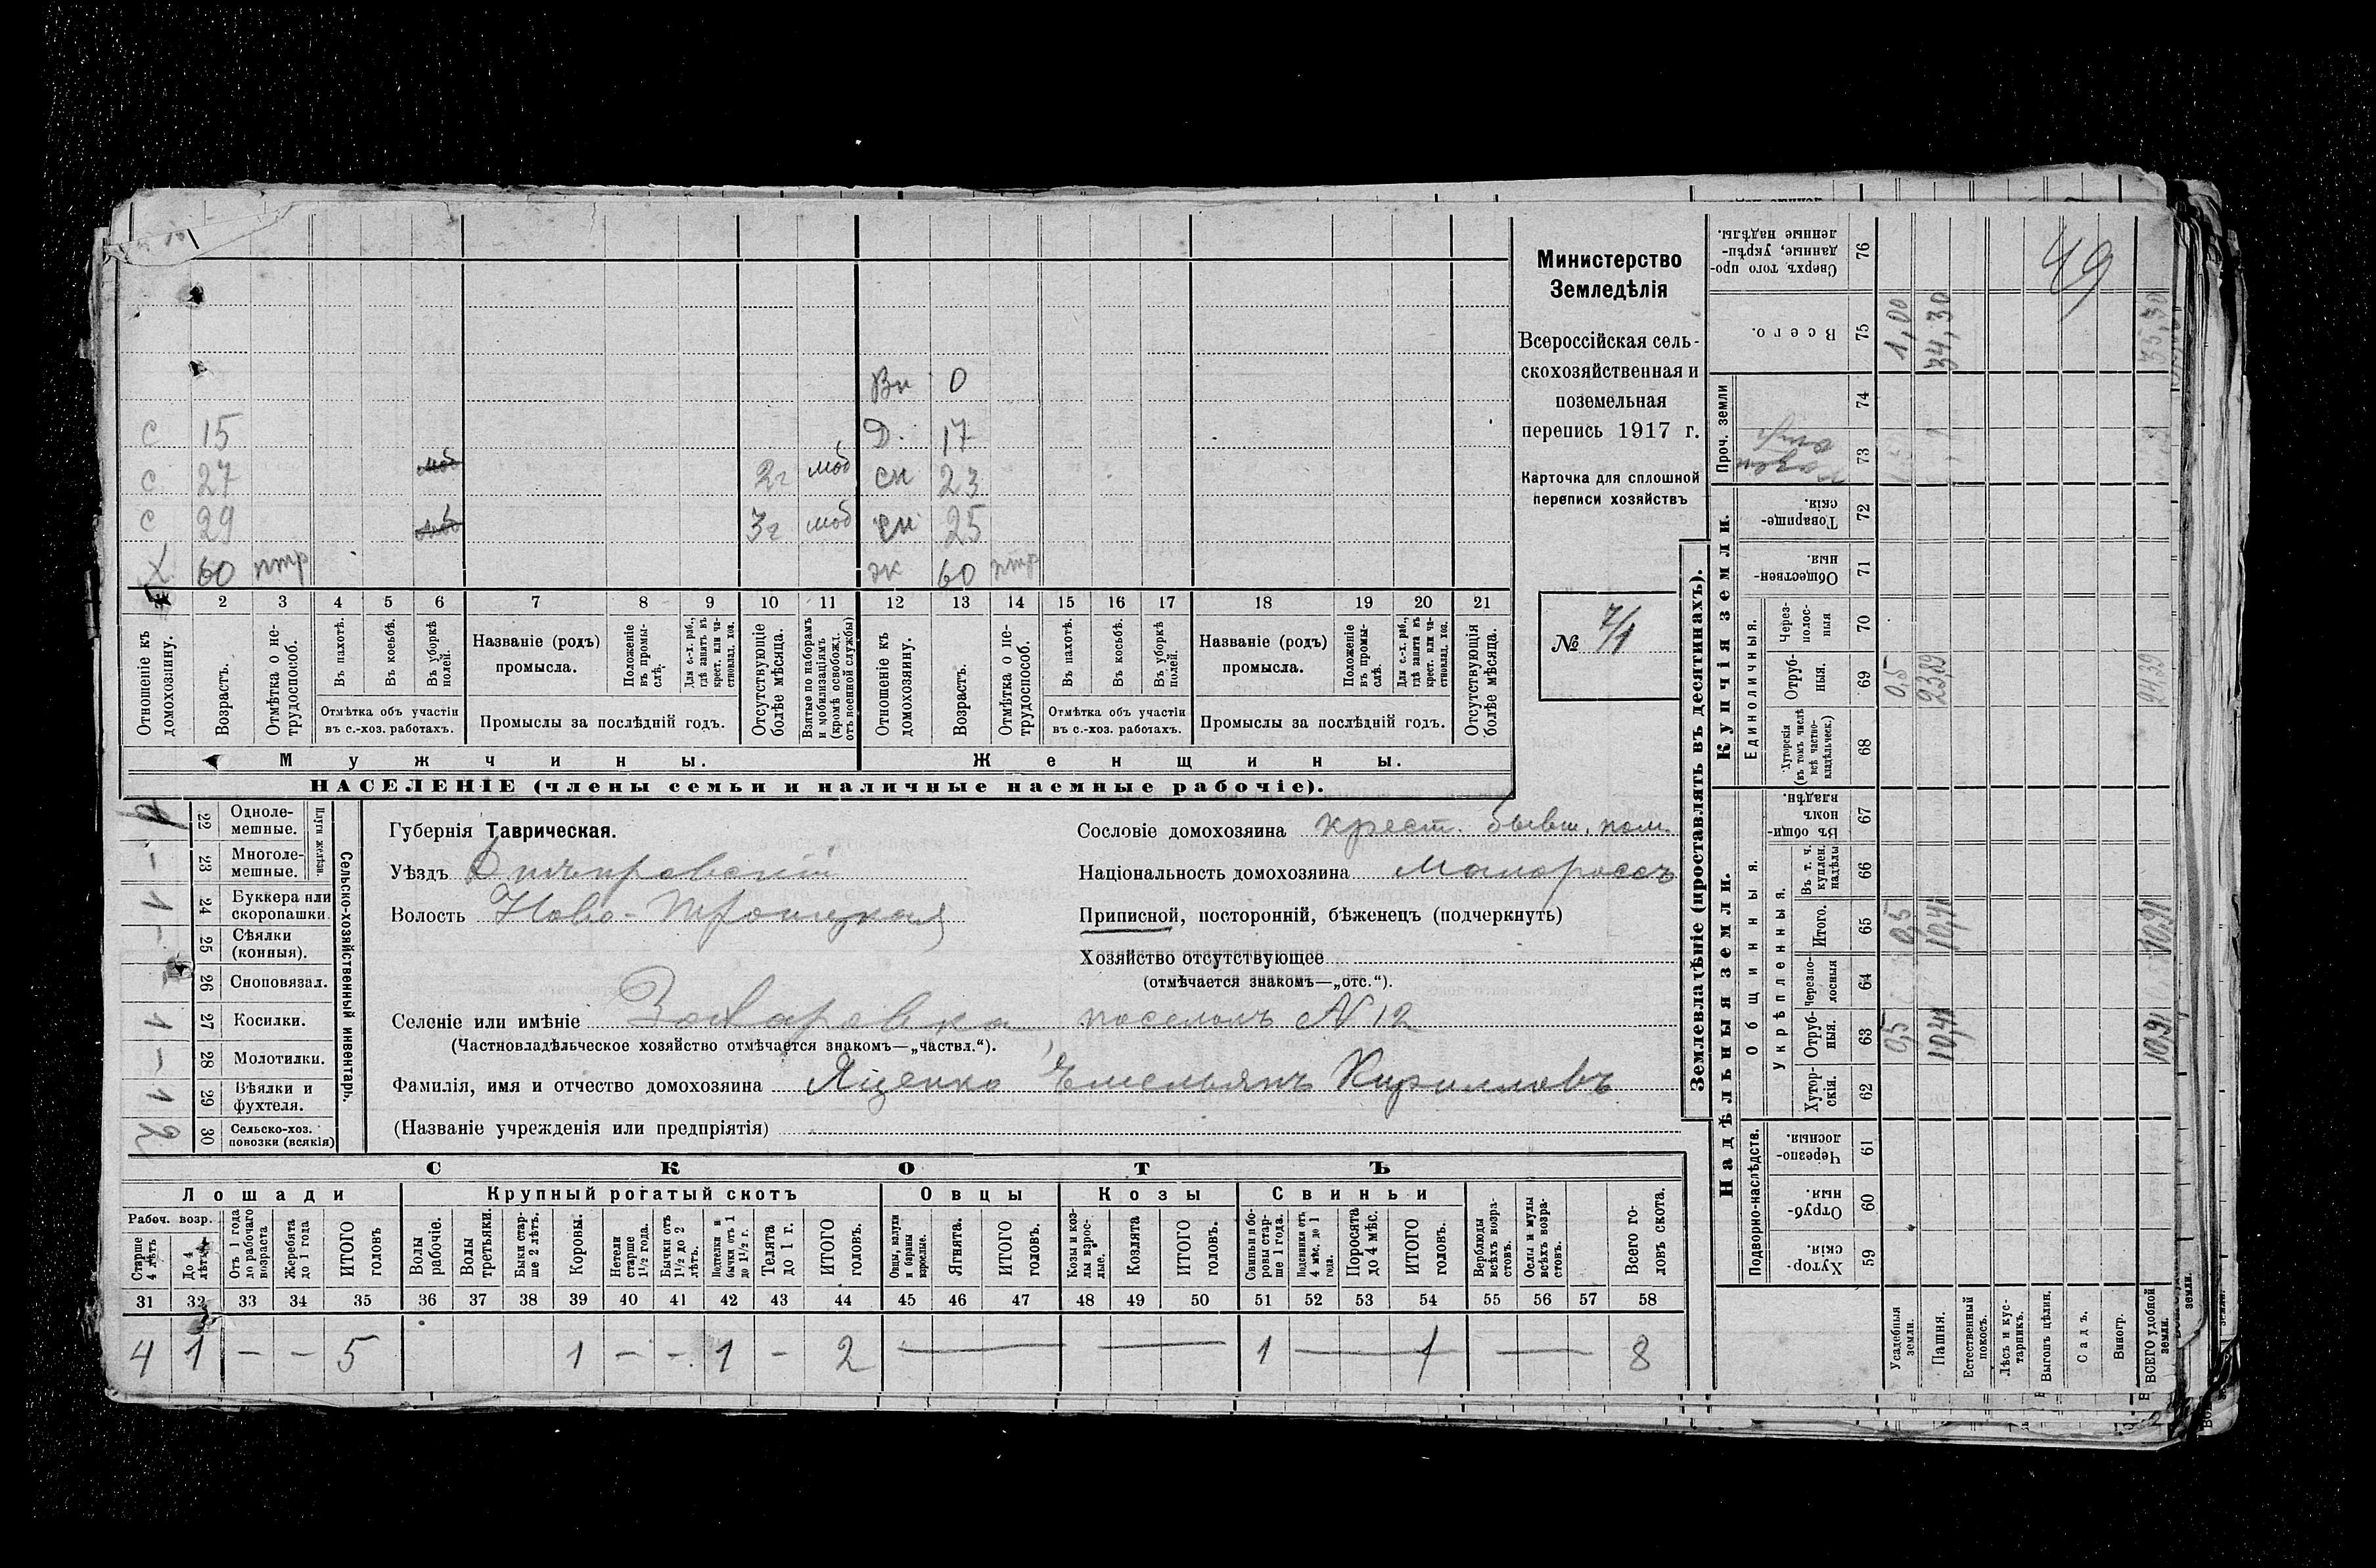 49
Вн 0
с 15 Д. 17
с 27 моб 2г моб сн 23
с 29 3г моб сн 25
Х 60 нтр жк 60 нтр
1 2 3 4 5 6 7 8 9 10 11 12 13 14 15 16 17 18 19 20 21
Отношеніе къ домохозяину.
Возрастъ.
Отмѣтка о не-трудоспособ.
Въ пахотѣ.
Въ косьбѣ.
Въ уборкѣ полей.
Отмѣтка объ участіи
въ с.-хоз. работахъ.
Названіе (родъ)
промысла.
Положеніе въ промы-слѣ.
Для с.-х. раб., гдѣ занятъ въ крест. или ча-стновлад. хоз.
Промыслы за послѣдній годъ.
Отсутствующіе болѣе мѣсяца.
Взятые по наборамъ и мобилизаціямъ (кромѣ освобожд. отъ военной службы)
Отношеніе къ домохозяину.
Возрастъ.
Отмѣтка о не-трудоспособ.
Въ пахотѣ.
Въ косьбѣ.
Въ уборкѣ полей.
Отмѣтка объ участіи
въ с.-хоз. работахъ.
Названіе (родъ)
промысла.
Положеніе въ промы-слѣ.
Для с.-х. раб., гдѣ занята въ крест. или ча-стновлад. хоз.
Промыслы за послѣдній годъ.
Отсутствующія болѣе мѣсяца.
Мужчины. Женщины.
НАСЕЛЕНІЕ (члены семьи и наличные наемные рабочіе).
Министерство
Земледѣлія
Всероссійская сель-
скохозяйственная и
поземельная
перепись 1917 г.
Карточка для сплошной
переписи хозяйствъ
№ 7/1
Сельско-хозяйственный инвентарь.
Плуги желѣзн.
22 Одноле-мешные.
– 23 Многоле-мешные.
1 24 Буккера или скоропашки.
– 25 Сѣялки (конныя).
26 Сноповязал.
1 27 Косилки.
– 28 Молотилки.
1 29 Вѣялки и фухтеля.
2 30 Сельско-хоз. повозки (всякія)
Губернія Таврическая.
Уѣздъ Днѣпровскій
Волость Ново-Троицкая
Селеніе или имѣніе Захаровка, поселокъ N 12
(Частновладѣльческое хозяйство отмѣчается знакомъ—„частвл.“).
Фамилія, имя и отчество домохозяина Яценко Емельянъ Кирилловъ
(Названіе учрежденія или предпріятія)
Сословіе домохозяина крест. бывш. пом.
Національность домохозяина Малороссъ
Приписной, посторонній, бѣженецъ (подчеркнуть)
Хозяйство отсутствующее
(отмѣчается знакомъ—„отс.“).
СКОТЪ
Лошади Крупный рогатый скотъ Овцы Козы Свиньи
Рабоч. возр.
Старше 4 лѣтъ
До 4 лѣтъ
Отъ 1 года до рабочаго возраста
Жеребята до 1 года
ИТОГО головъ
Волы рабочіе.
Волы третьяки.
Быки стар-ше 2 лѣтъ.
Коровы.
Нетели старше 1½ года.
Бычки отъ 1½ до 2 лѣтъ.
Подтелки и бычки отъ 1 до 1½ г.
Телята до 1 г.
ИТОГО головъ.
Овцы, валухи и бараны взрослые.
Ягнята.
ИТОГО головъ.
Козы и коз-лы взрос-лые.
Козлята
ИТОГО головъ.
Свиньи и бо-ровы стар-ше 1 года.
Подсвинки отъ 4 мѣс. до 1 года.
Поросята до 4 мѣс.
ИТОГО головъ.
Верблюды всѣхъ возра-стовъ.
Ослы и мулы всѣхъ возра-стовъ.
Всего го-ловъ скота.
31 32 33 34 35 36 37 38 39 40 41 42 43 44 45 46 47 48 49 50 51 52 53 54 55 56 57 58
4 1 – – 5 1 – – 1 – 2 — — 1 — 1 — 8
Землевладѣніе (проставлять въ десятинахъ).
Надѣльныя земли. Купчія земли. Проч. земли
Подворно-наслѣдств. Общинныя. Единоличныя.
Укрѣпленныя.
Хутор-скія. 59
Отруб-ныя. 60
Черезпо-лосныя. 61
Хутор-скія. 62
Отруб-ныя. 63
Черезпо-лосныя 64
Итого. 65
Въ т. ч. куплен. надѣлы 66
Въ общи-номъ владѣн. 67
Хуторскія (въ томъ числѣ всѣ частно-владѣльческ.) 68
Отруб-ныя. 69
Через-полос-ныя 70
Обществен-ныя. 71
Товарище-скія. 72
73
74
Всего. 75
Сверхъ того про-данные, укрѣп-ленные надѣлы. 76
Усадебныя земли. 0,5 0,5 0,5 1,00
Пашня. 10,41 10,41 23,89 34,30
Естественный покосъ.
Лѣсъ и кус-тарникъ.
Выгонъ цѣлин.
Садъ.
Виногр.
ВСЕГО удобной земли. 10,91 10,91 24,39 35,30